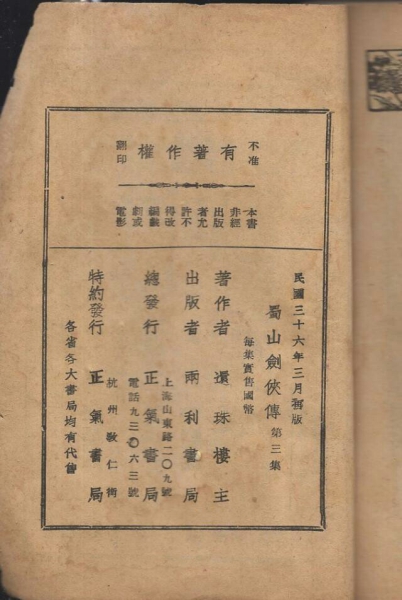 不准 有著作權 翻印
本書非經出版者允許不得改編戲劇或電影
民國三十六年三月初版
蜀山劍俠傳 第三集
每集實售國幣
著作者 還珠樓主
出版者 兩利書局
上海山東路二〇九號
總發行 正氣書局
電話九三〇六三號
杭州敎仁街
特約發行 正氣書局
各省各大書局均有代售